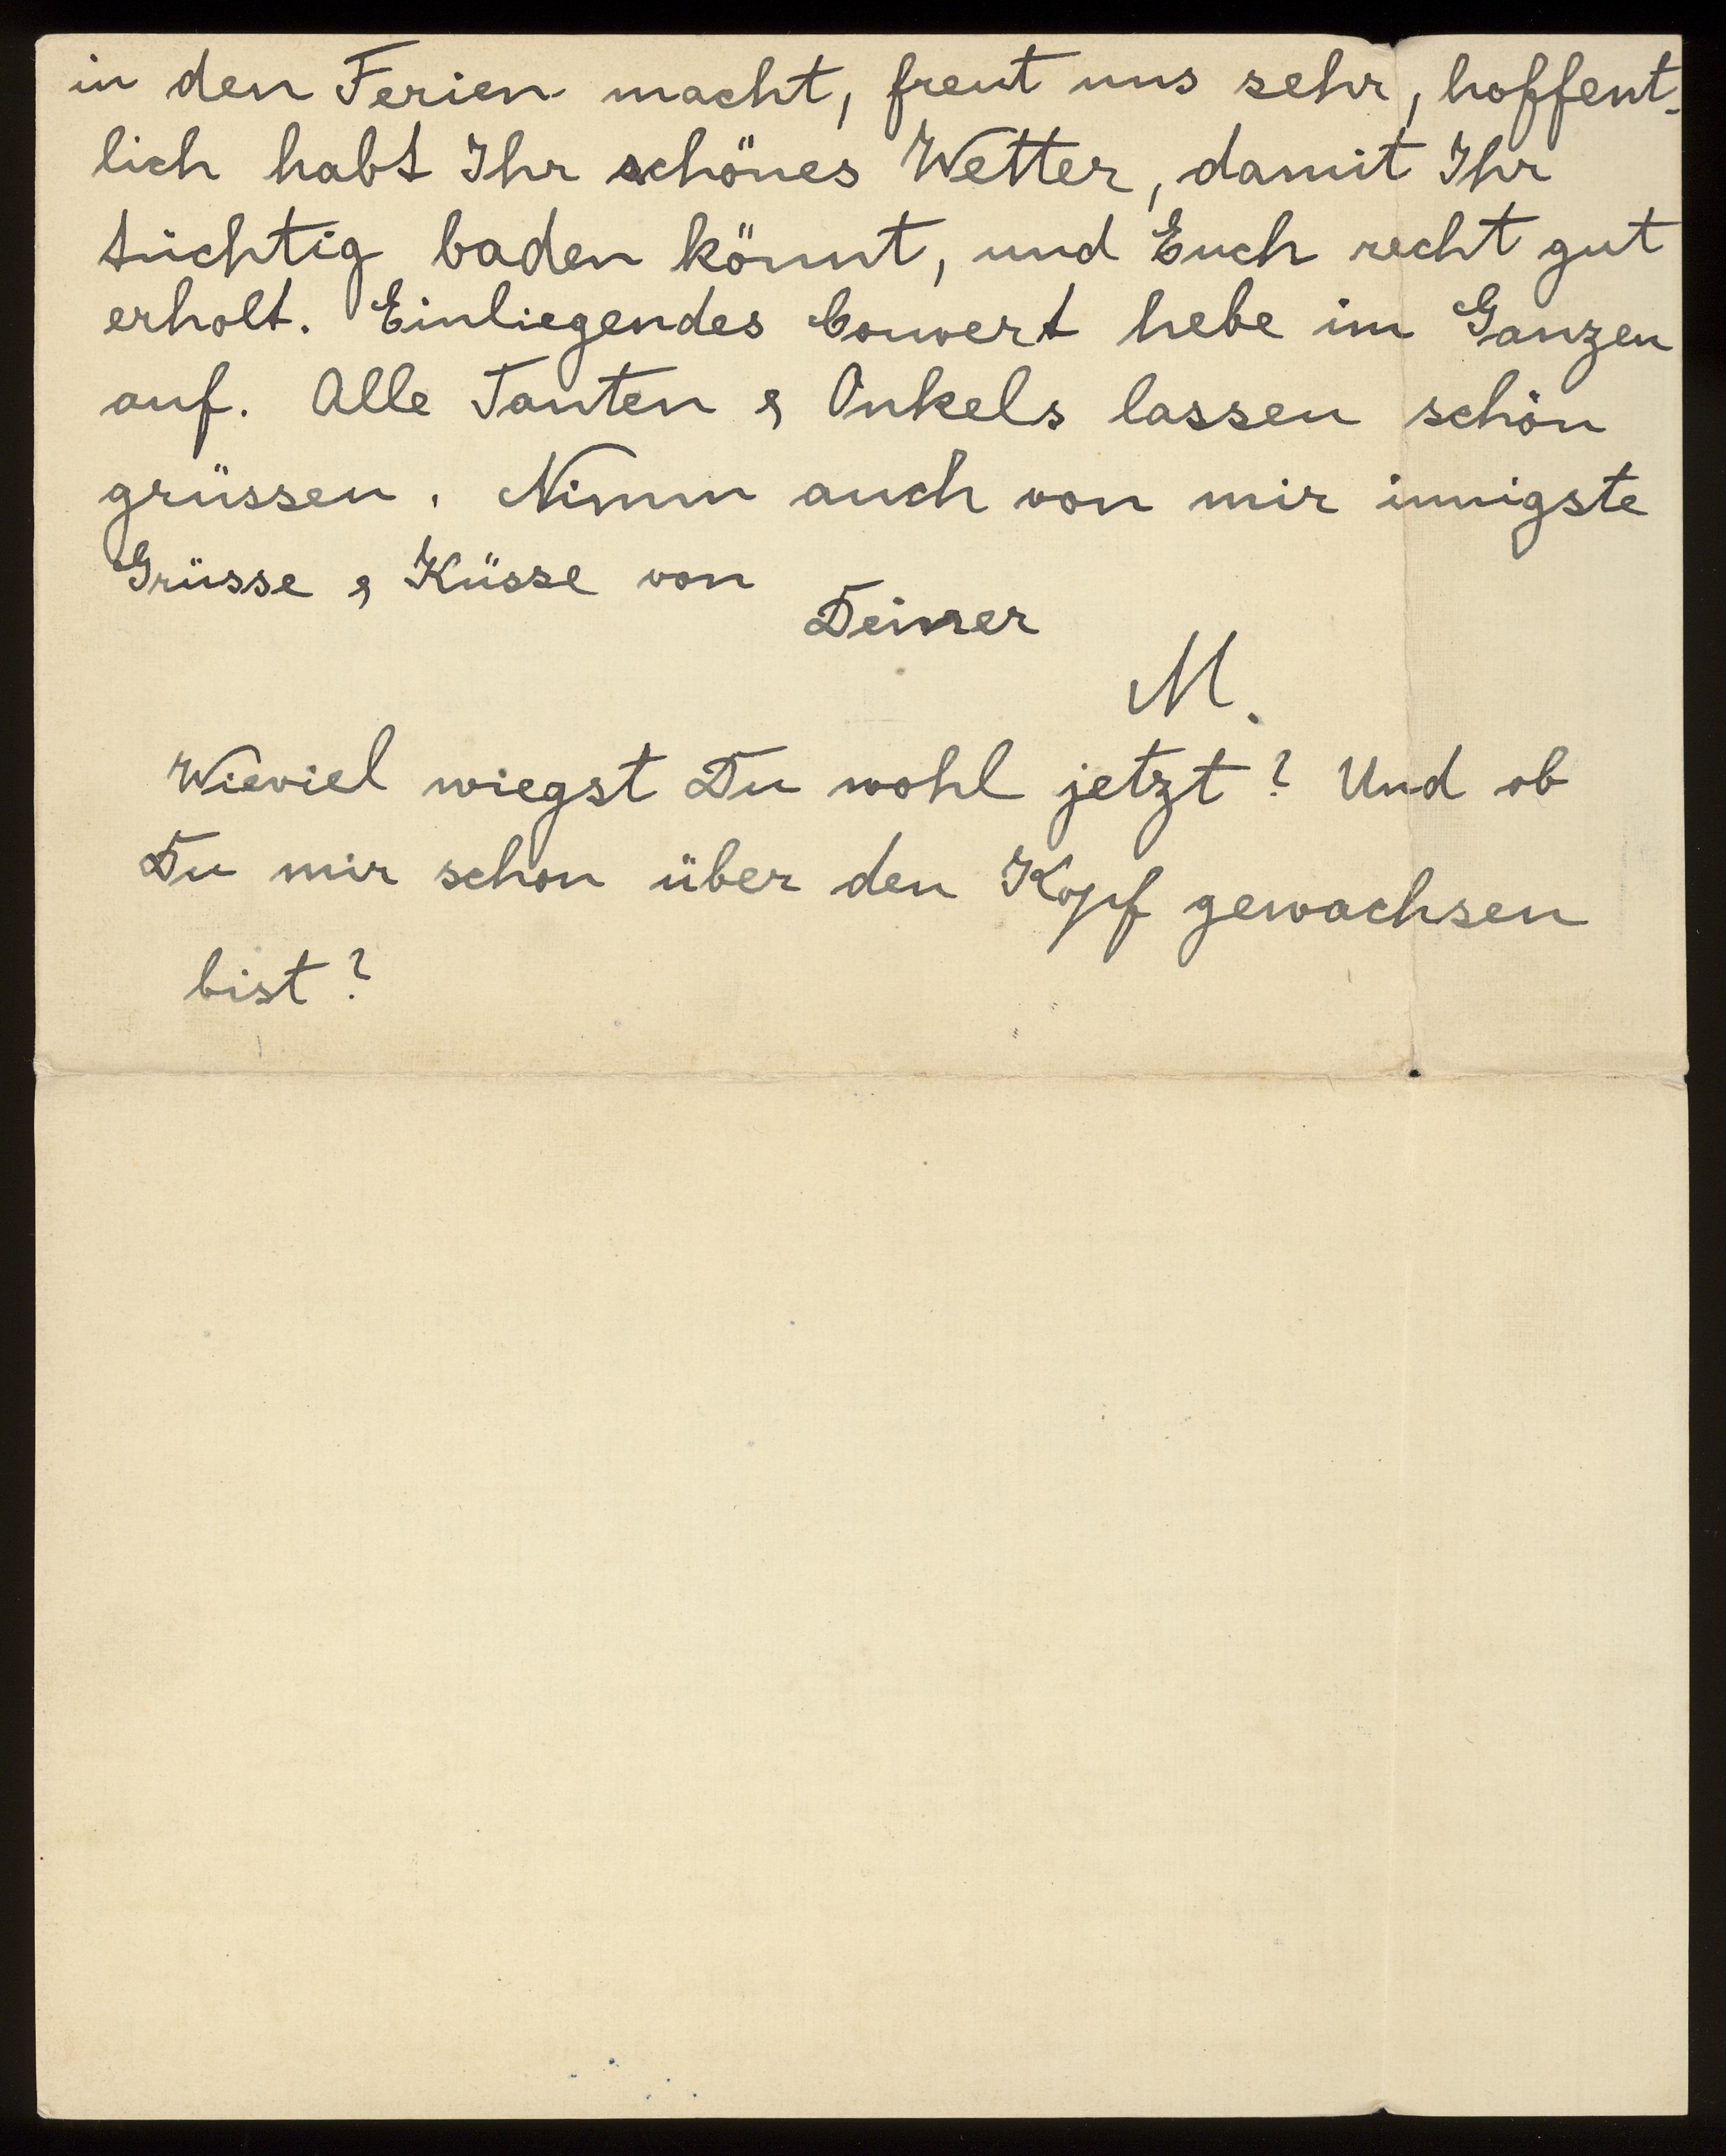 in den Ferien macht, freut uns sehr, hoffent-
lich habt Ihr schönes Wetter, damit Ihr
tüchtig baden könnt, und Euch recht gut
erholt. Einliegendes Couvert hebe im Ganzen
auf. Alle Tanten & Onkels lassen schön
grüssen. Nimm auch von mir innigste
Grüsse & Küsse von
Deiner
M.
Wieviel wiegst Du wohl jetzt? Und ob
Du mir schon über den Kopf gewachsen
bist?